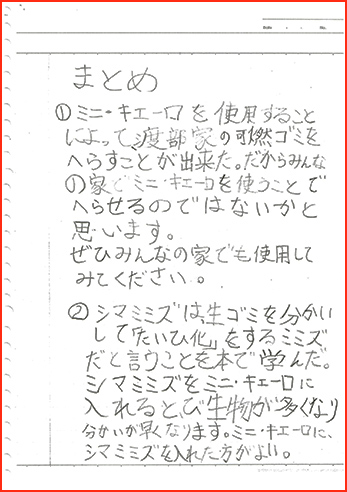 まとめ
①ミニ・キエーロを使用すること
によって渡部家の可燃ゴミを
へらすことが出来た。だからみんな
の家でミニ・キエーロを使うことで
へらせるのではないかと
思います。
ぜひみんなの家でも使用して
みてください。
②シマミミズは、生ゴミを分かい
して「たいひ化」をするミミズ
だと言うことを本で学んだ。
シマミミズをミニ・キエーロに
入れると、び生物が多くなり
分かいが早くなります。ミニ・キエーロに、
シマミミズを入れた方がよい。